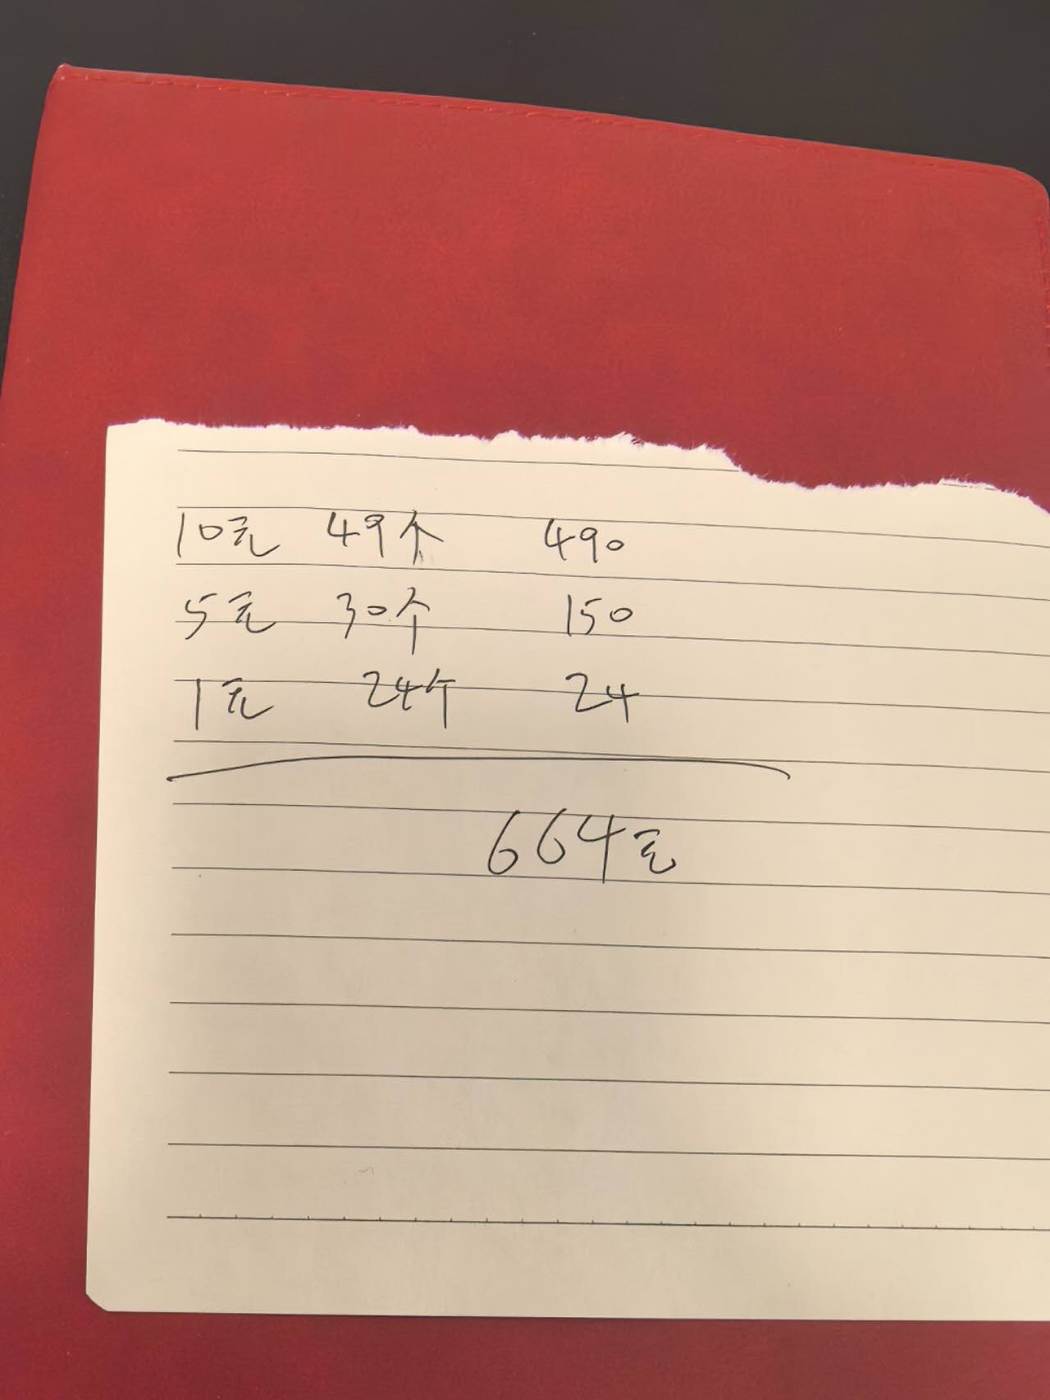 10元 49个 490
5元 30个 150
1元 24个 24
664元